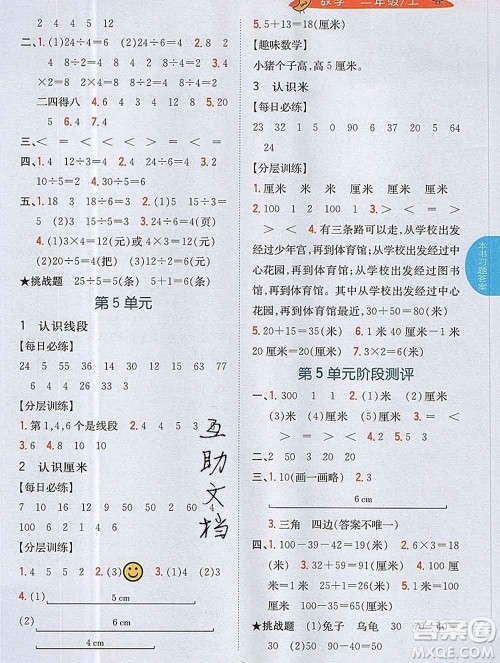 数学 二年级/上
2 4 4 5 12
二、1.(1)24÷4=6 (2)24÷6=4
二四得八 2.4 3.6 4.2 5.20
三、< = < < = = =
四、1.4 12÷3=4 2.18÷2=9
3.10÷5=2
五、1.15÷3=5 2.16÷2=8 3.(1)15÷3=5
(2)10÷5=2 4.(1)3×2=6(页)
(2)3×4=12(元)或4×3=12(元)
5.(1)20÷5=4(把) (2)20÷4=5(把)
★挑战题 25÷5=5(组) 5+1=6(组)
第5单元
1 认识线段
【每日必练】
24 5 55 38 35 24 9 8
27 48
【分层训练】
1.第1,4,6个是线段
2.4 3.10 4.6
2 认识厘米
【每日必练】
16 7 50 18 37 82 60
90 100
【分层训练】
1.4 5 5 2.(3) 3.(1)4 (2)5
4.(1)
5 cm
(2)
6 cm
4 cm
5.5+13=18(厘米)
【趣味数学】
小猪个子高,高5厘米。
3 认识米
【每日必练】
23 32 15 90 20 17 5 64
24
【分层训练】
1.厘米 米 米 厘米 厘米
2.100 1 2 100 3.有三条路可以走,从学校出
发经过少年宫,再到体育馆;从学校出发经过中心
花园,再到体育馆;从学校出发经过图书
馆,再到体育馆。其中,从学校出发经过中
心花园,再到体育馆最近。 4.> < = <
5.20+15=35(厘米) 6.1米=100厘米
100-10=90(厘米)
第5单元阶段测评
一、1.(1)厘米 (2)米 (3)厘米 2.9
3.100 200 8 4.< > < = < =
二、1.(3) 2.(3) 3.(2)
三、1.10(画一画略) 2.
6 cm
3.三角 四边(答案不唯一)
四、1.100-39-42=19(米) 2.6×3=18
(米) 3.32+59=91(米) 4.(1)18-
10=8(米) (2)9×2=18(米)
5.25+15=40(米)
★挑战题 1.兔子 乌龟 30 2.
互助文档
本书习题答案
答案圈
MXQE.COM